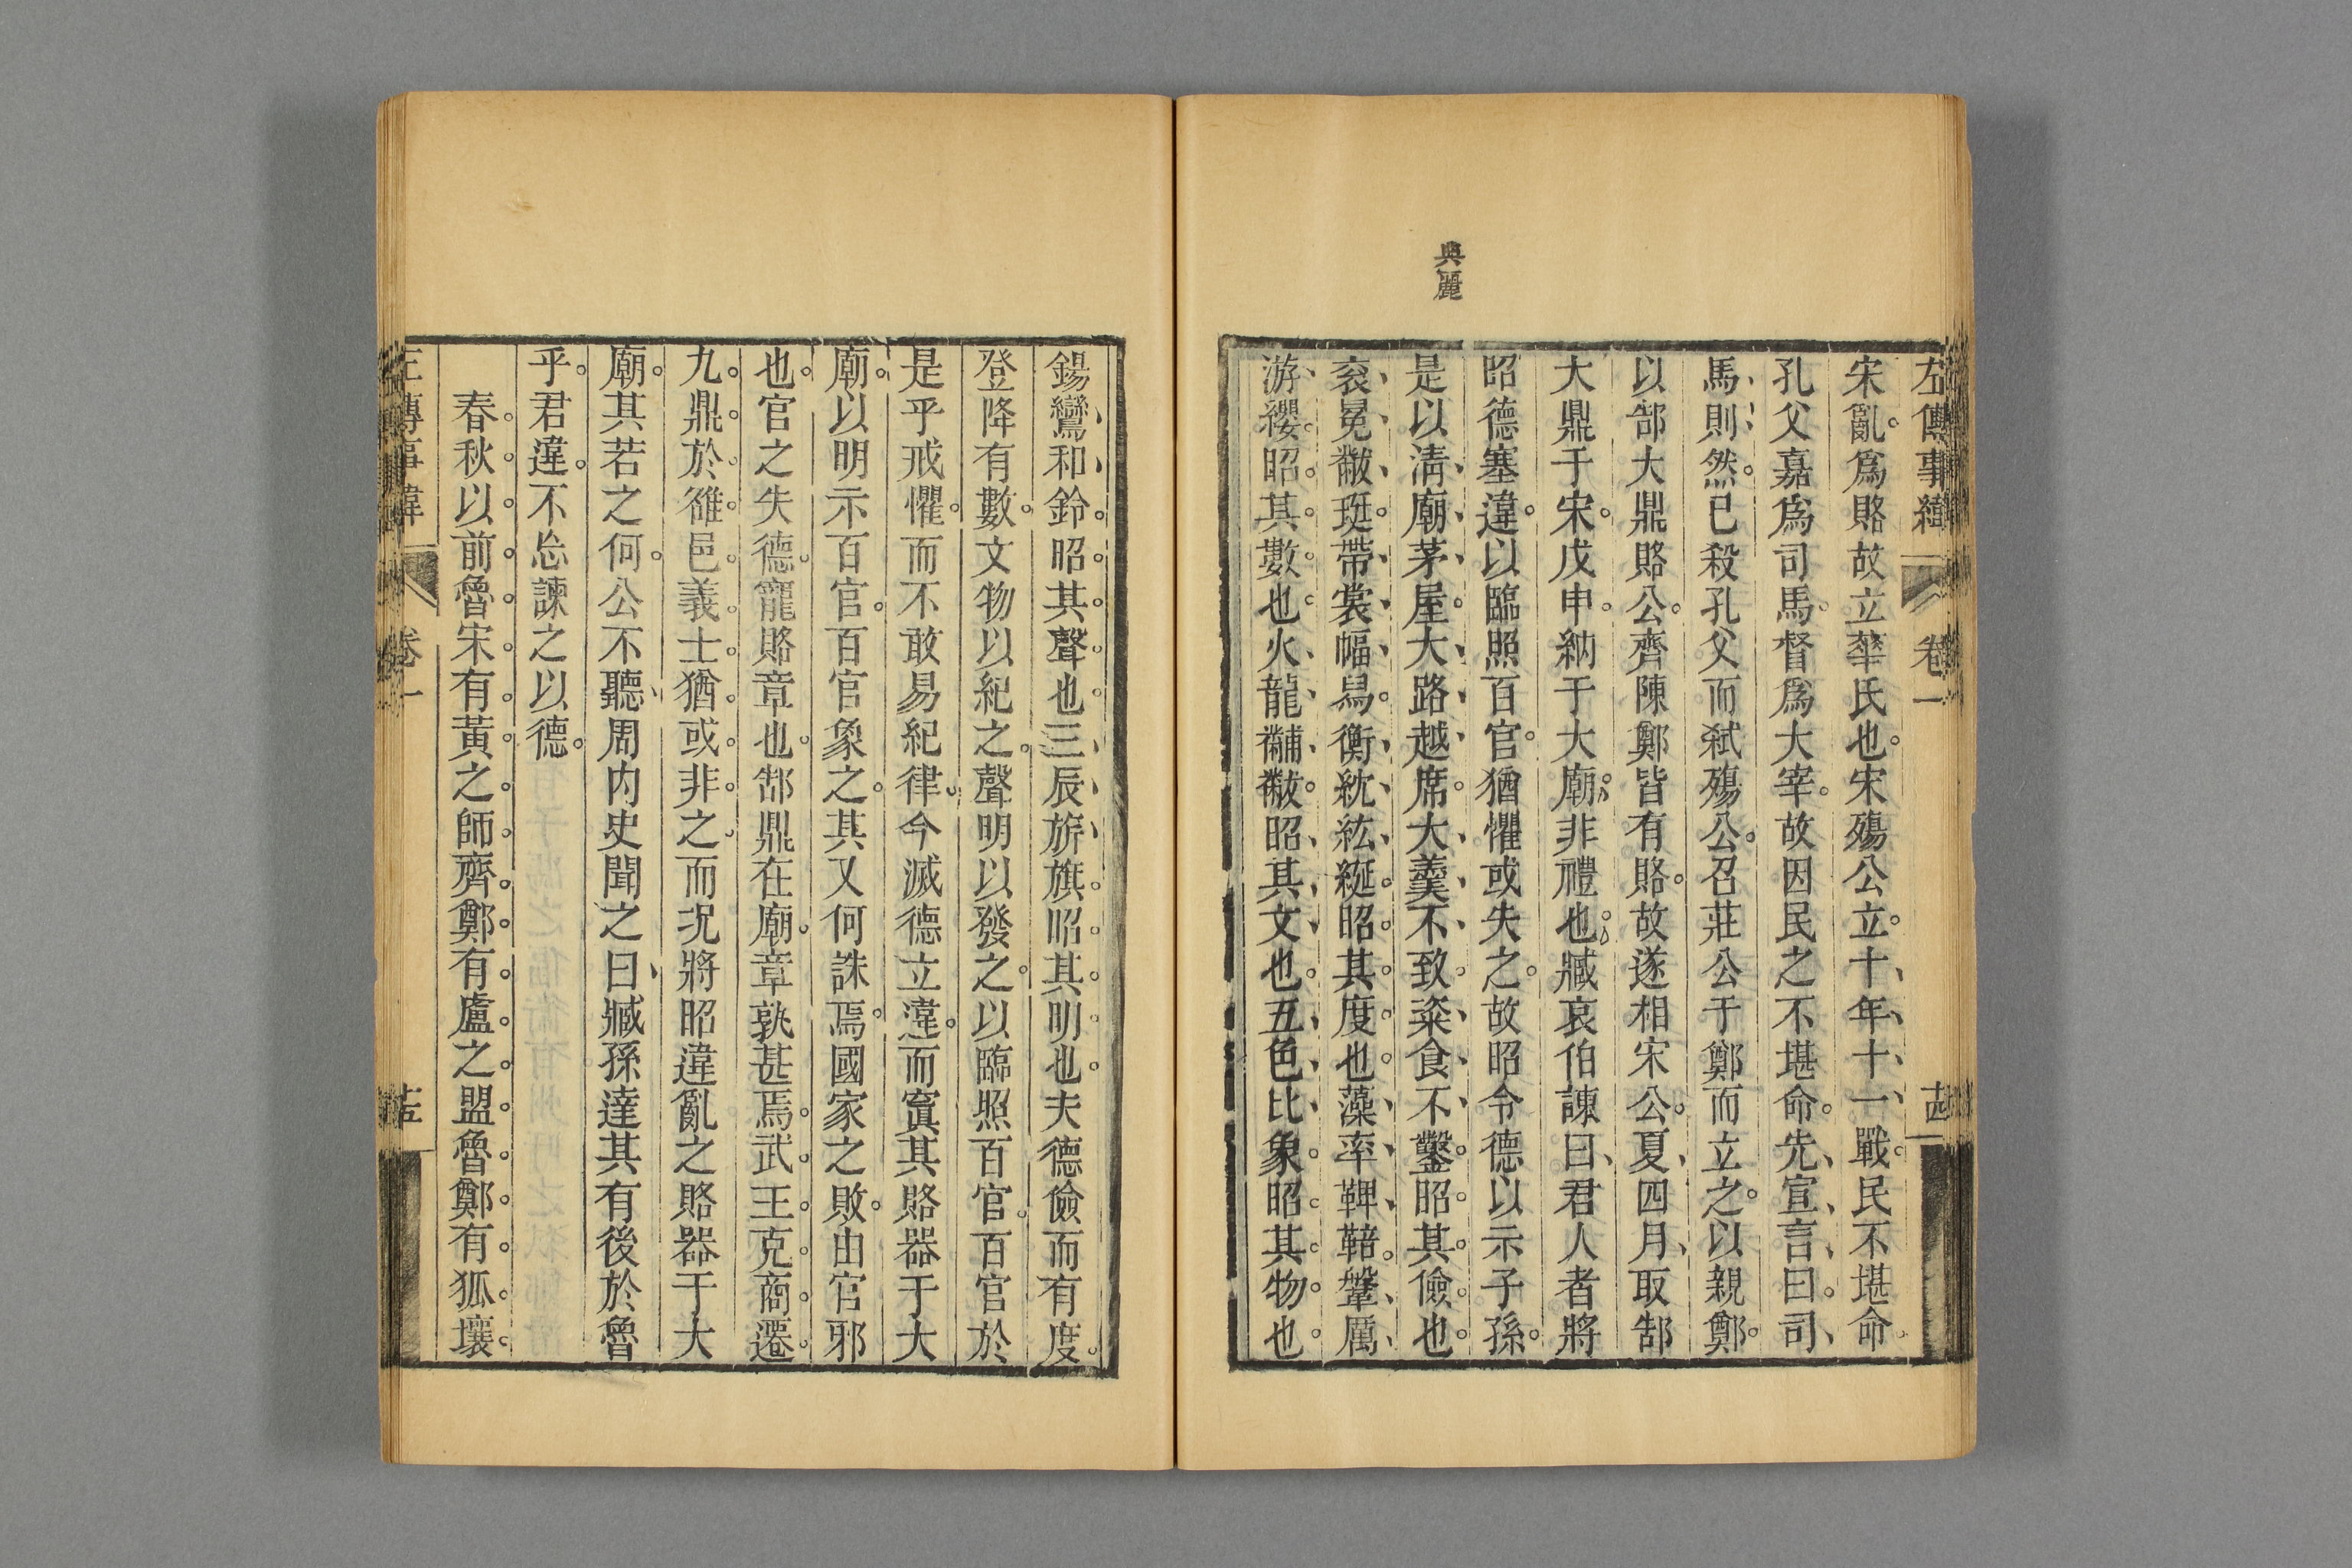 典麗
左傳事緯 卷一 十四
宋亂爲賂故立華氏也宋殤公立十年十一戰民不堪命
孔父嘉爲司馬督爲大宰故因民之不堪命先宣言曰司
馬則然已殺孔父而弑殤公召莊公于鄭而立之以親鄭
以郜大鼎賂公齊陳鄭皆有賂故遂相宋公夏四月取郜
大鼎于宋戊申納于大廟非禮也臧哀伯諫曰君人者將
昭德塞違以臨照百官猶懼或失之故昭令德以示子孫
是以淸廟茅屋大路越席大羹不致粢食不鑿昭其儉也
袞冕黻珽帶裳幅舄衡紞紘綖昭其度也藻率鞞鞛鞶厲
游纓昭其數也火龍黼黻昭其文也五色比象昭其物也
鍚鸞和鈴昭其聲也三辰旂旗昭其明也夫德儉而有度
登降有數文物以紀之聲明以發之以臨照百官百官於
是乎戒懼而不敢易紀律今滅德立違而寘其賂器于大
廟以明示百官百官象之其又何誅焉國家之敗由官邪
也官之失德寵賂章也郜鼎在廟章孰甚焉武王克商遷
九鼎於雒邑義士猶或非之而況將昭違亂之賂器于大
廟其若之何公不聽周内史聞之曰臧孫達其有後於魯
乎君違不忘諫之以德
春秋以前魯宋有黃之師齊鄭有盧之盟魯鄭有狐壤
左傳事緯 卷一 十五